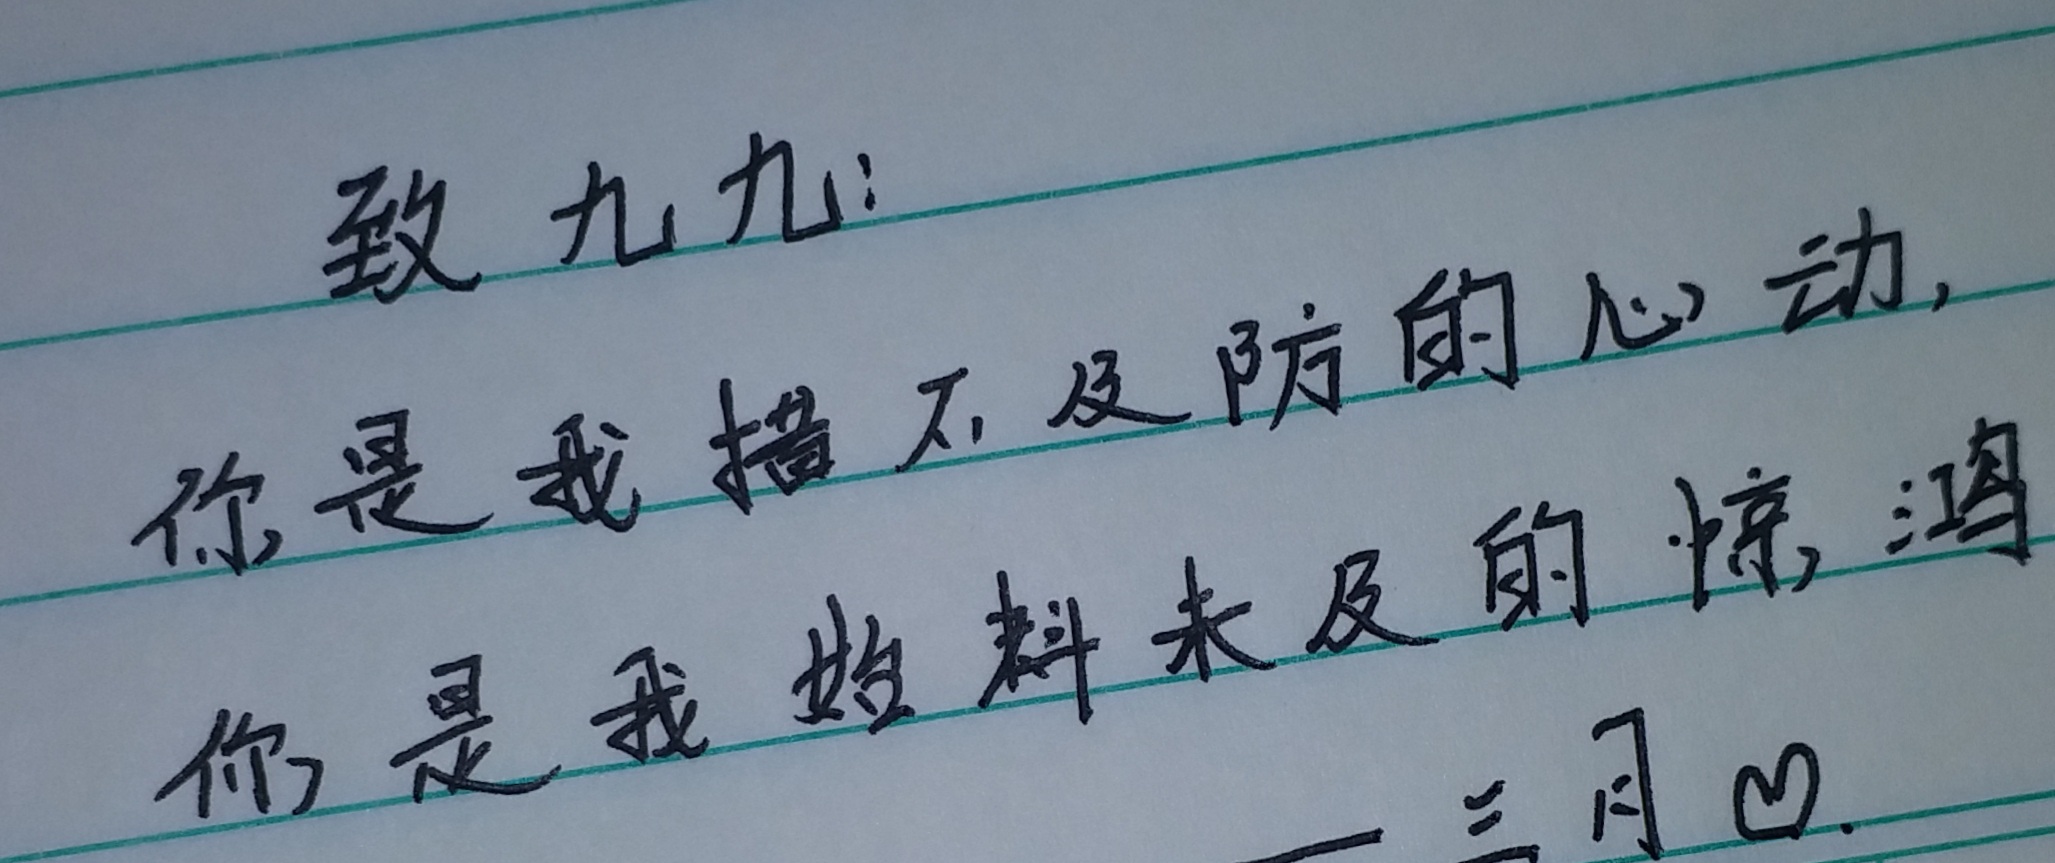 致九九:
你是我措不及防的心动,
你是我始料未及的惊鸿
—三月♡.